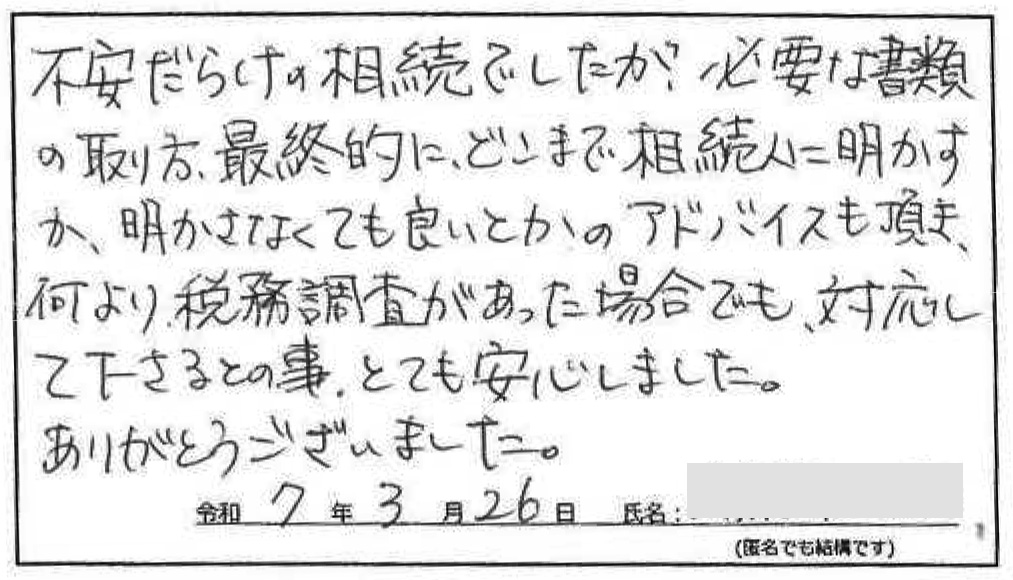 不安だらけの相続でしたが、必要な書類
の取り方、最終的に、どこまで相続人に明かす
か、明かさなくても良いとかのアドバイスも頂き、
何より、税務調査があった場合でも、対応し
て下さるとの事、とても安心しました。
ありがとうございました。
令和 7 年 3 月 26 日 氏名:
(匿名でも結構です)